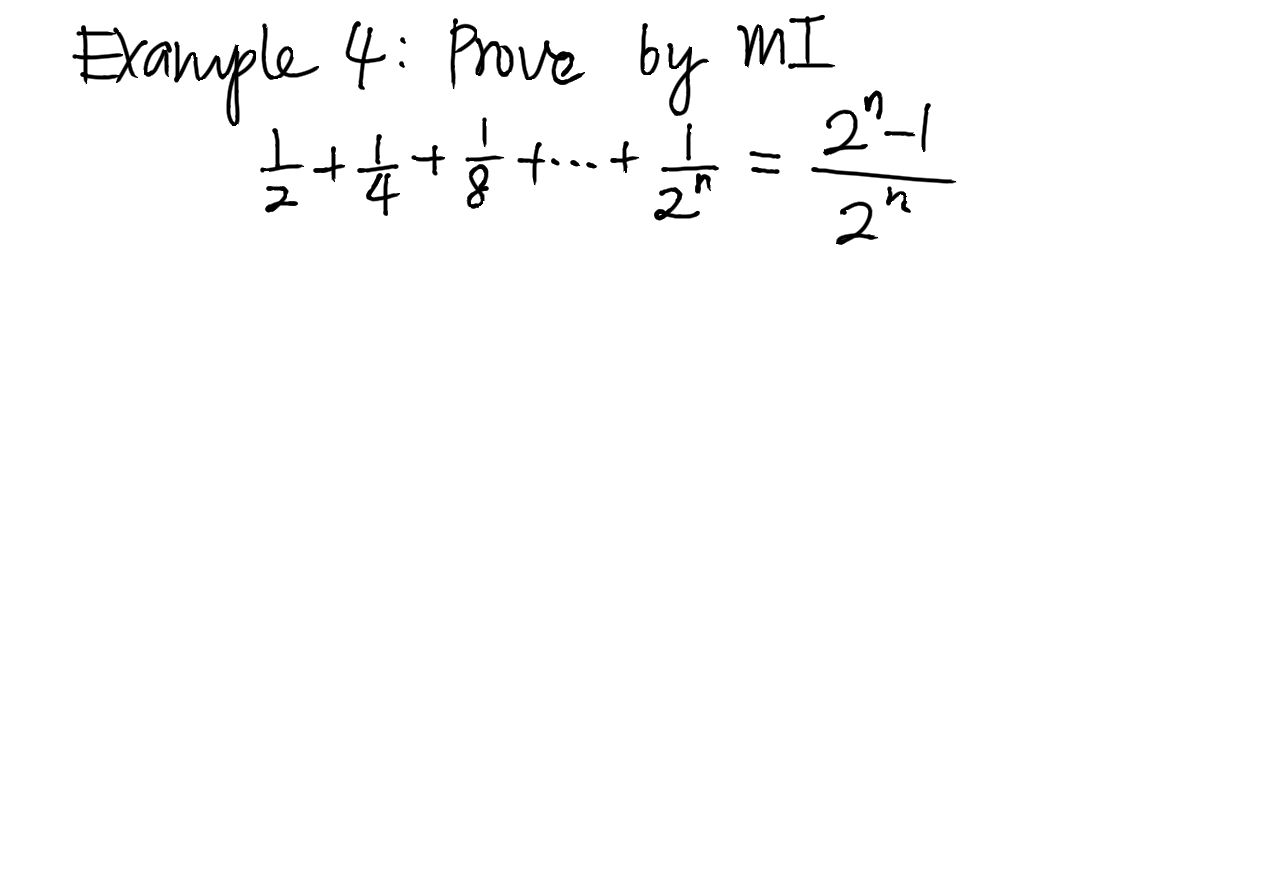 Example 4: Prove by MI
1/2 + 1/4 + 1/8 + ... + 1/2^n = (2^n - 1)/2^n